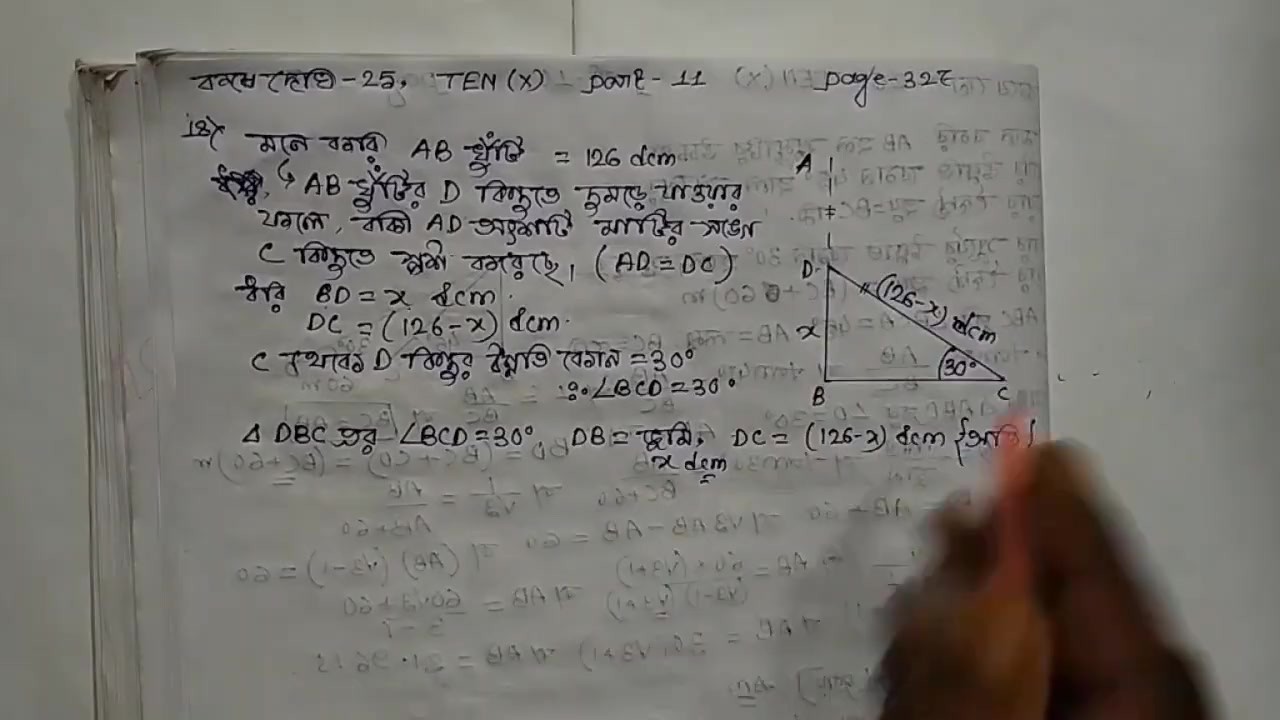 কষে দেখি - 25, TEN (X) part - 11 page - 327
18)
মনে করি AB খুঁটি = 126 dcm
AB খুঁটির D বিন্দুতে দুমড়ে যাওয়ার
ফলে, বাকি AD অংশটি মাটির সঙ্গে
C বিন্দুতে স্পর্শ করেছে। (AD = DC)
ধরি BD = x dcm.
DC = (126-x) dcm.
C থেকে D বিন্দুর উন্নতি কোণ = 30°
∴ ∠BCD = 30°
Δ DBC এর ∠BCD = 30°, DB = ভূমি, DC = (126-x) dcm
x dcm
A
D
x
B
C
(126-x) dcm
30°